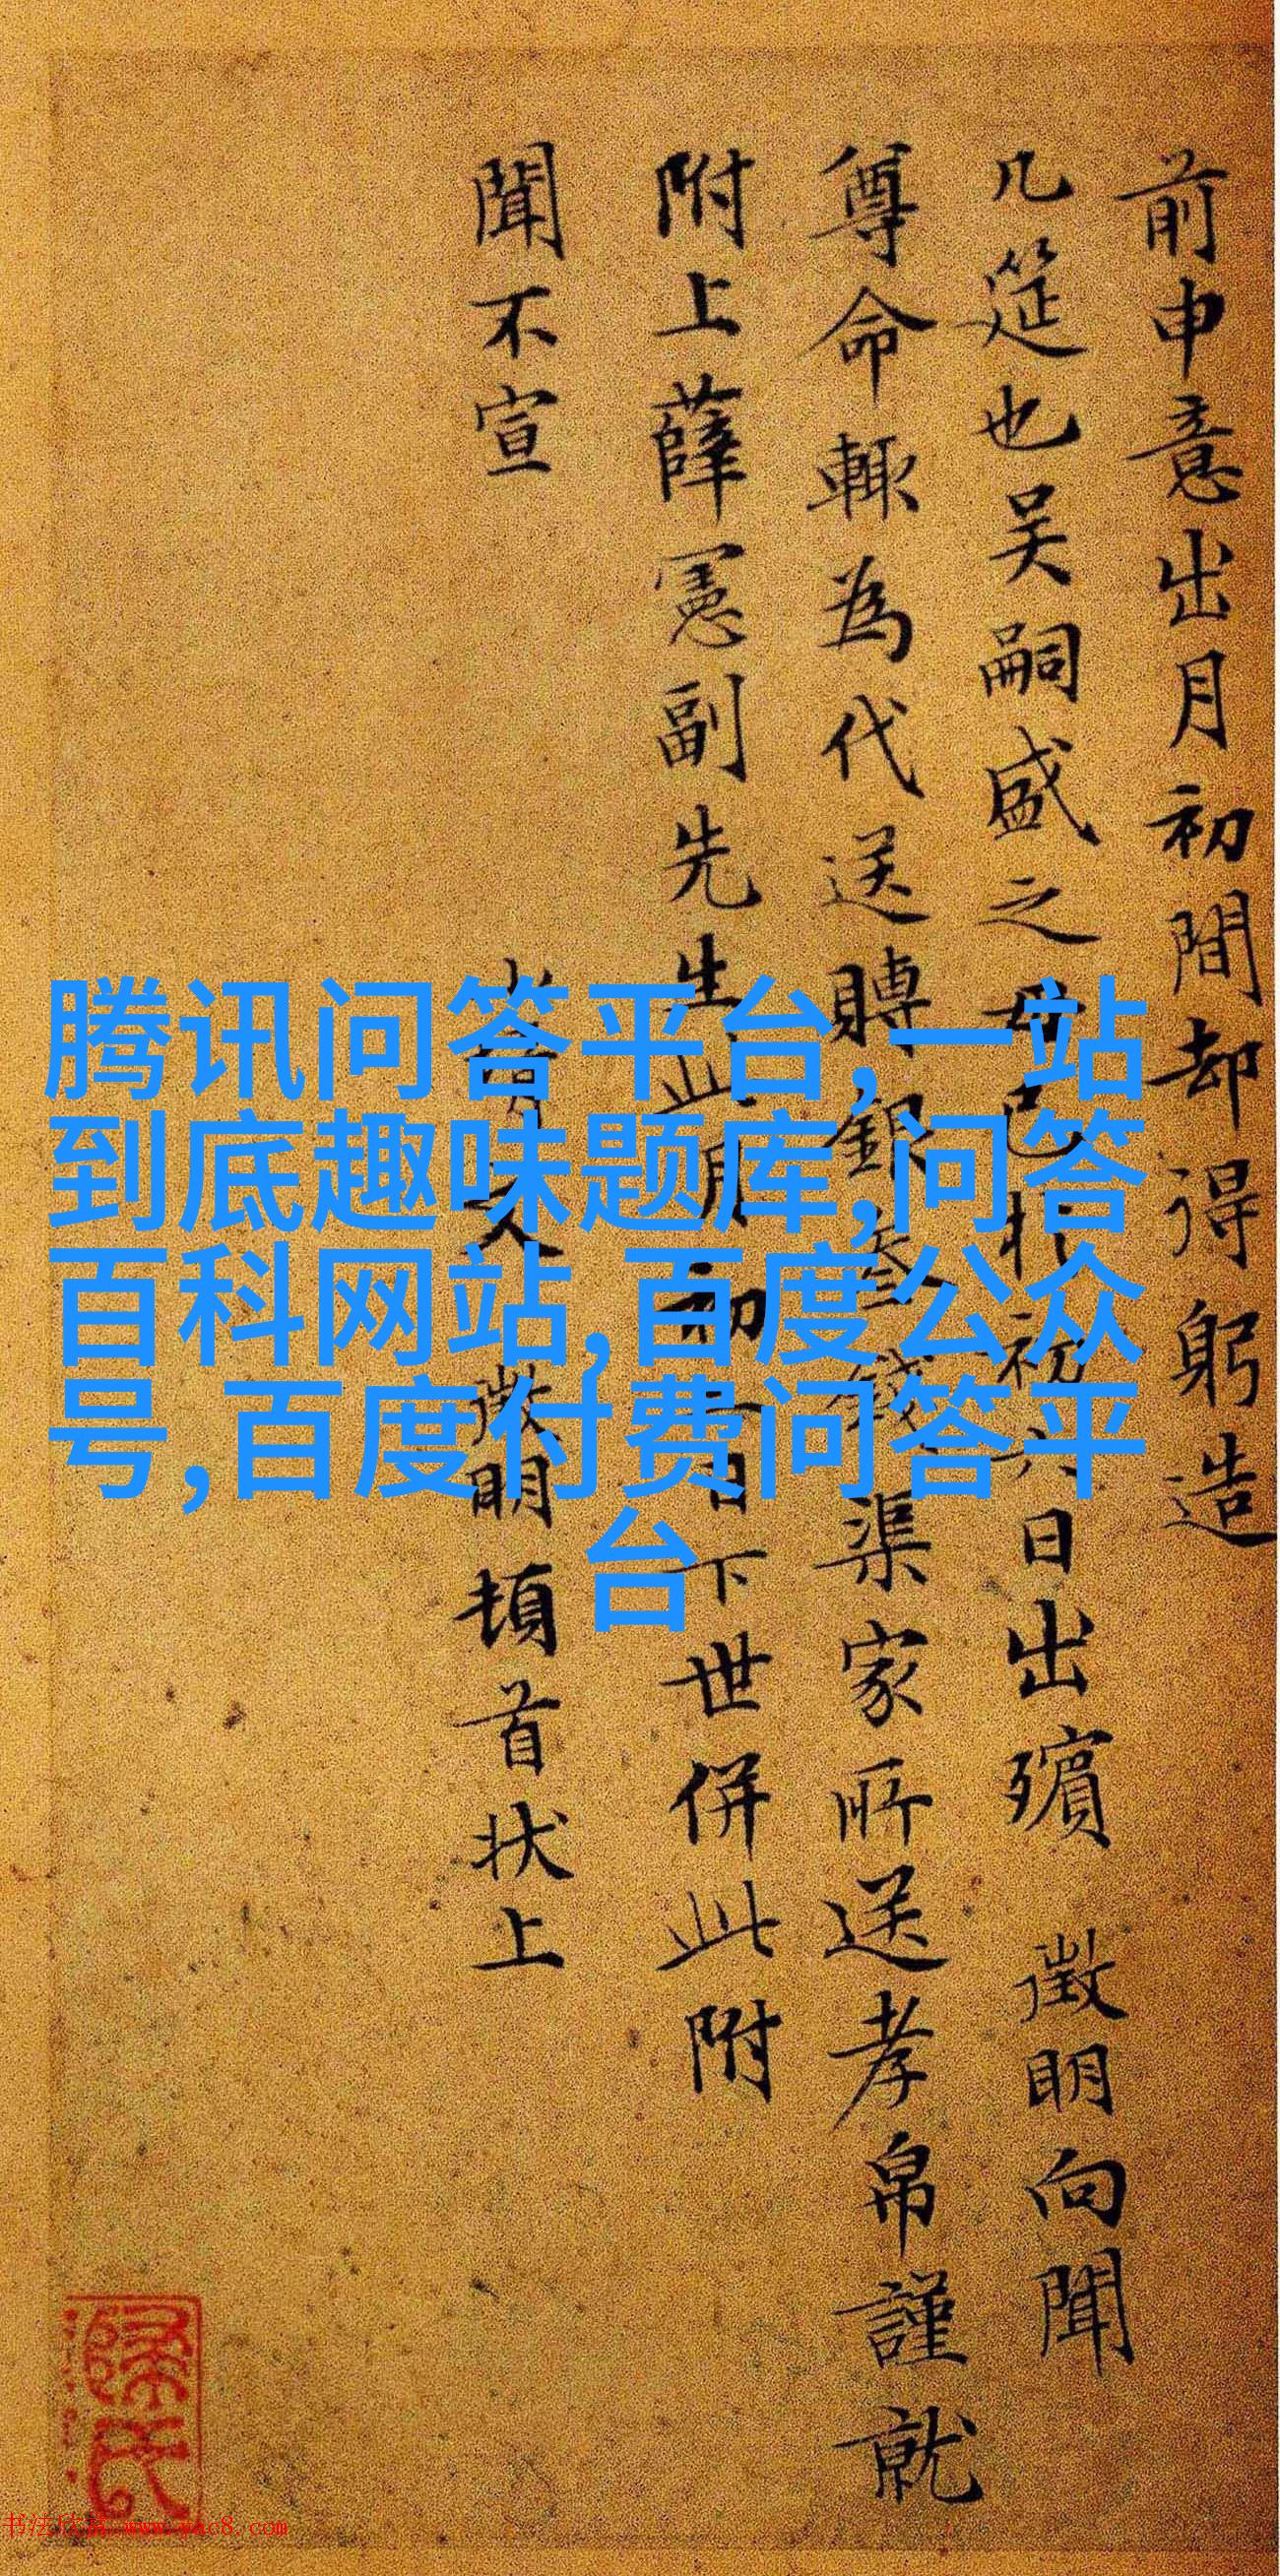 前申意出月初間却得躬造
几筵也吴嗣盛之母已於初六日出殯 徵明向聞
尊命輙為代送賻銀叁錢渠家所送孝帛謹就
附上薛憲副先生此月初二日下世併此附
聞不宣 徵明頓首状上
腾讯问答平台,一站
到底趣味题库,问答
百科网站,百度公众
号,百度付费问答平
台
书法欣赏 www.yac8.com